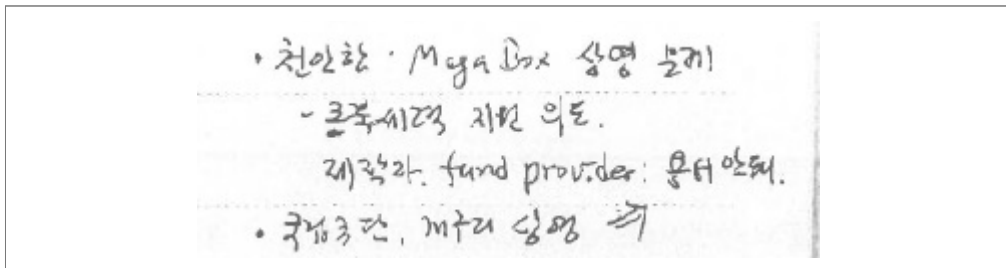 · 천안함 · Mega Box 상영 문제
- 종북세력 지원 의도.
제작자. fund provider: 용서 안돼.
· 국립극단, 개구리 상영